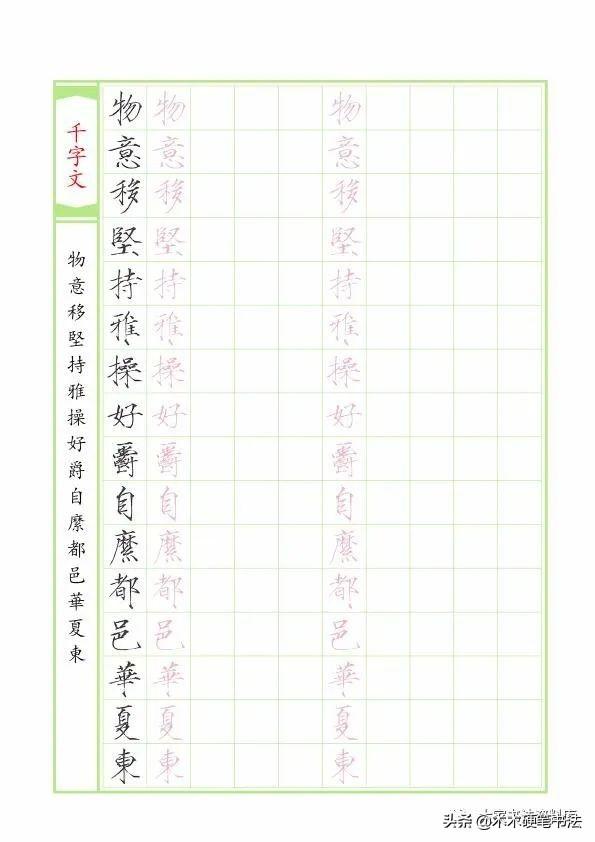 千字文
物意移堅持雅操好爵自縻都邑華夏東
物 物 物
意 意 意
移 移 移
堅 堅 堅
持 持 持
雅 雅 雅
操 操 操
好 好 好
爵 爵 爵
自 自 自
縻 縻 縻
都 都 都
邑 邑 邑
華 華 華
夏 夏 夏
東 東 東
头条 @木木硬笔书法